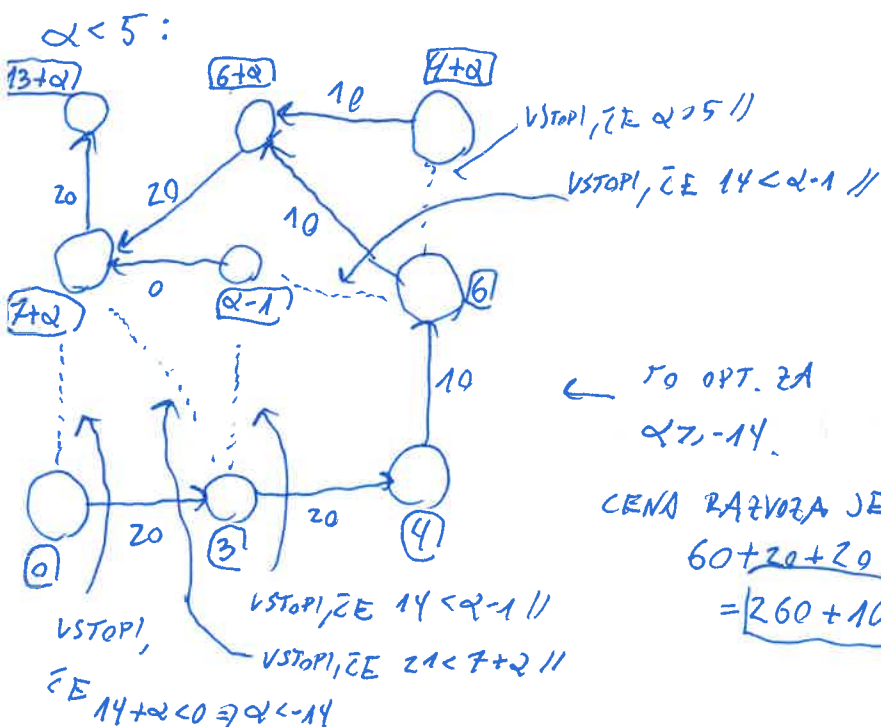 α < 5 :
13+α 6+α 4+α
10
VSTOPI, ČE α > 5 //
VSTOPI, ČE 14 < α-1 //
20 20 10
0
7+α α-1 6
10
← TO OPT. ZA
α ≥ -14.
CENA RAZVOZA JE
60+20+20
= 260 + 10
20 20
0 3 4
VSTOPI, ČE 14 < α-1 //
VSTOPI, ČE 21 < 7+α //
VSTOPI,
ČE
14+α < 0 ⇒ α < -14